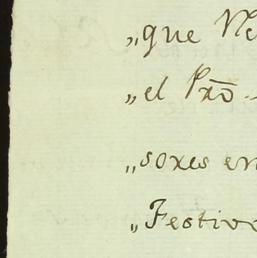 „que Ne
„el Pro̅
„sores en
„Festivo